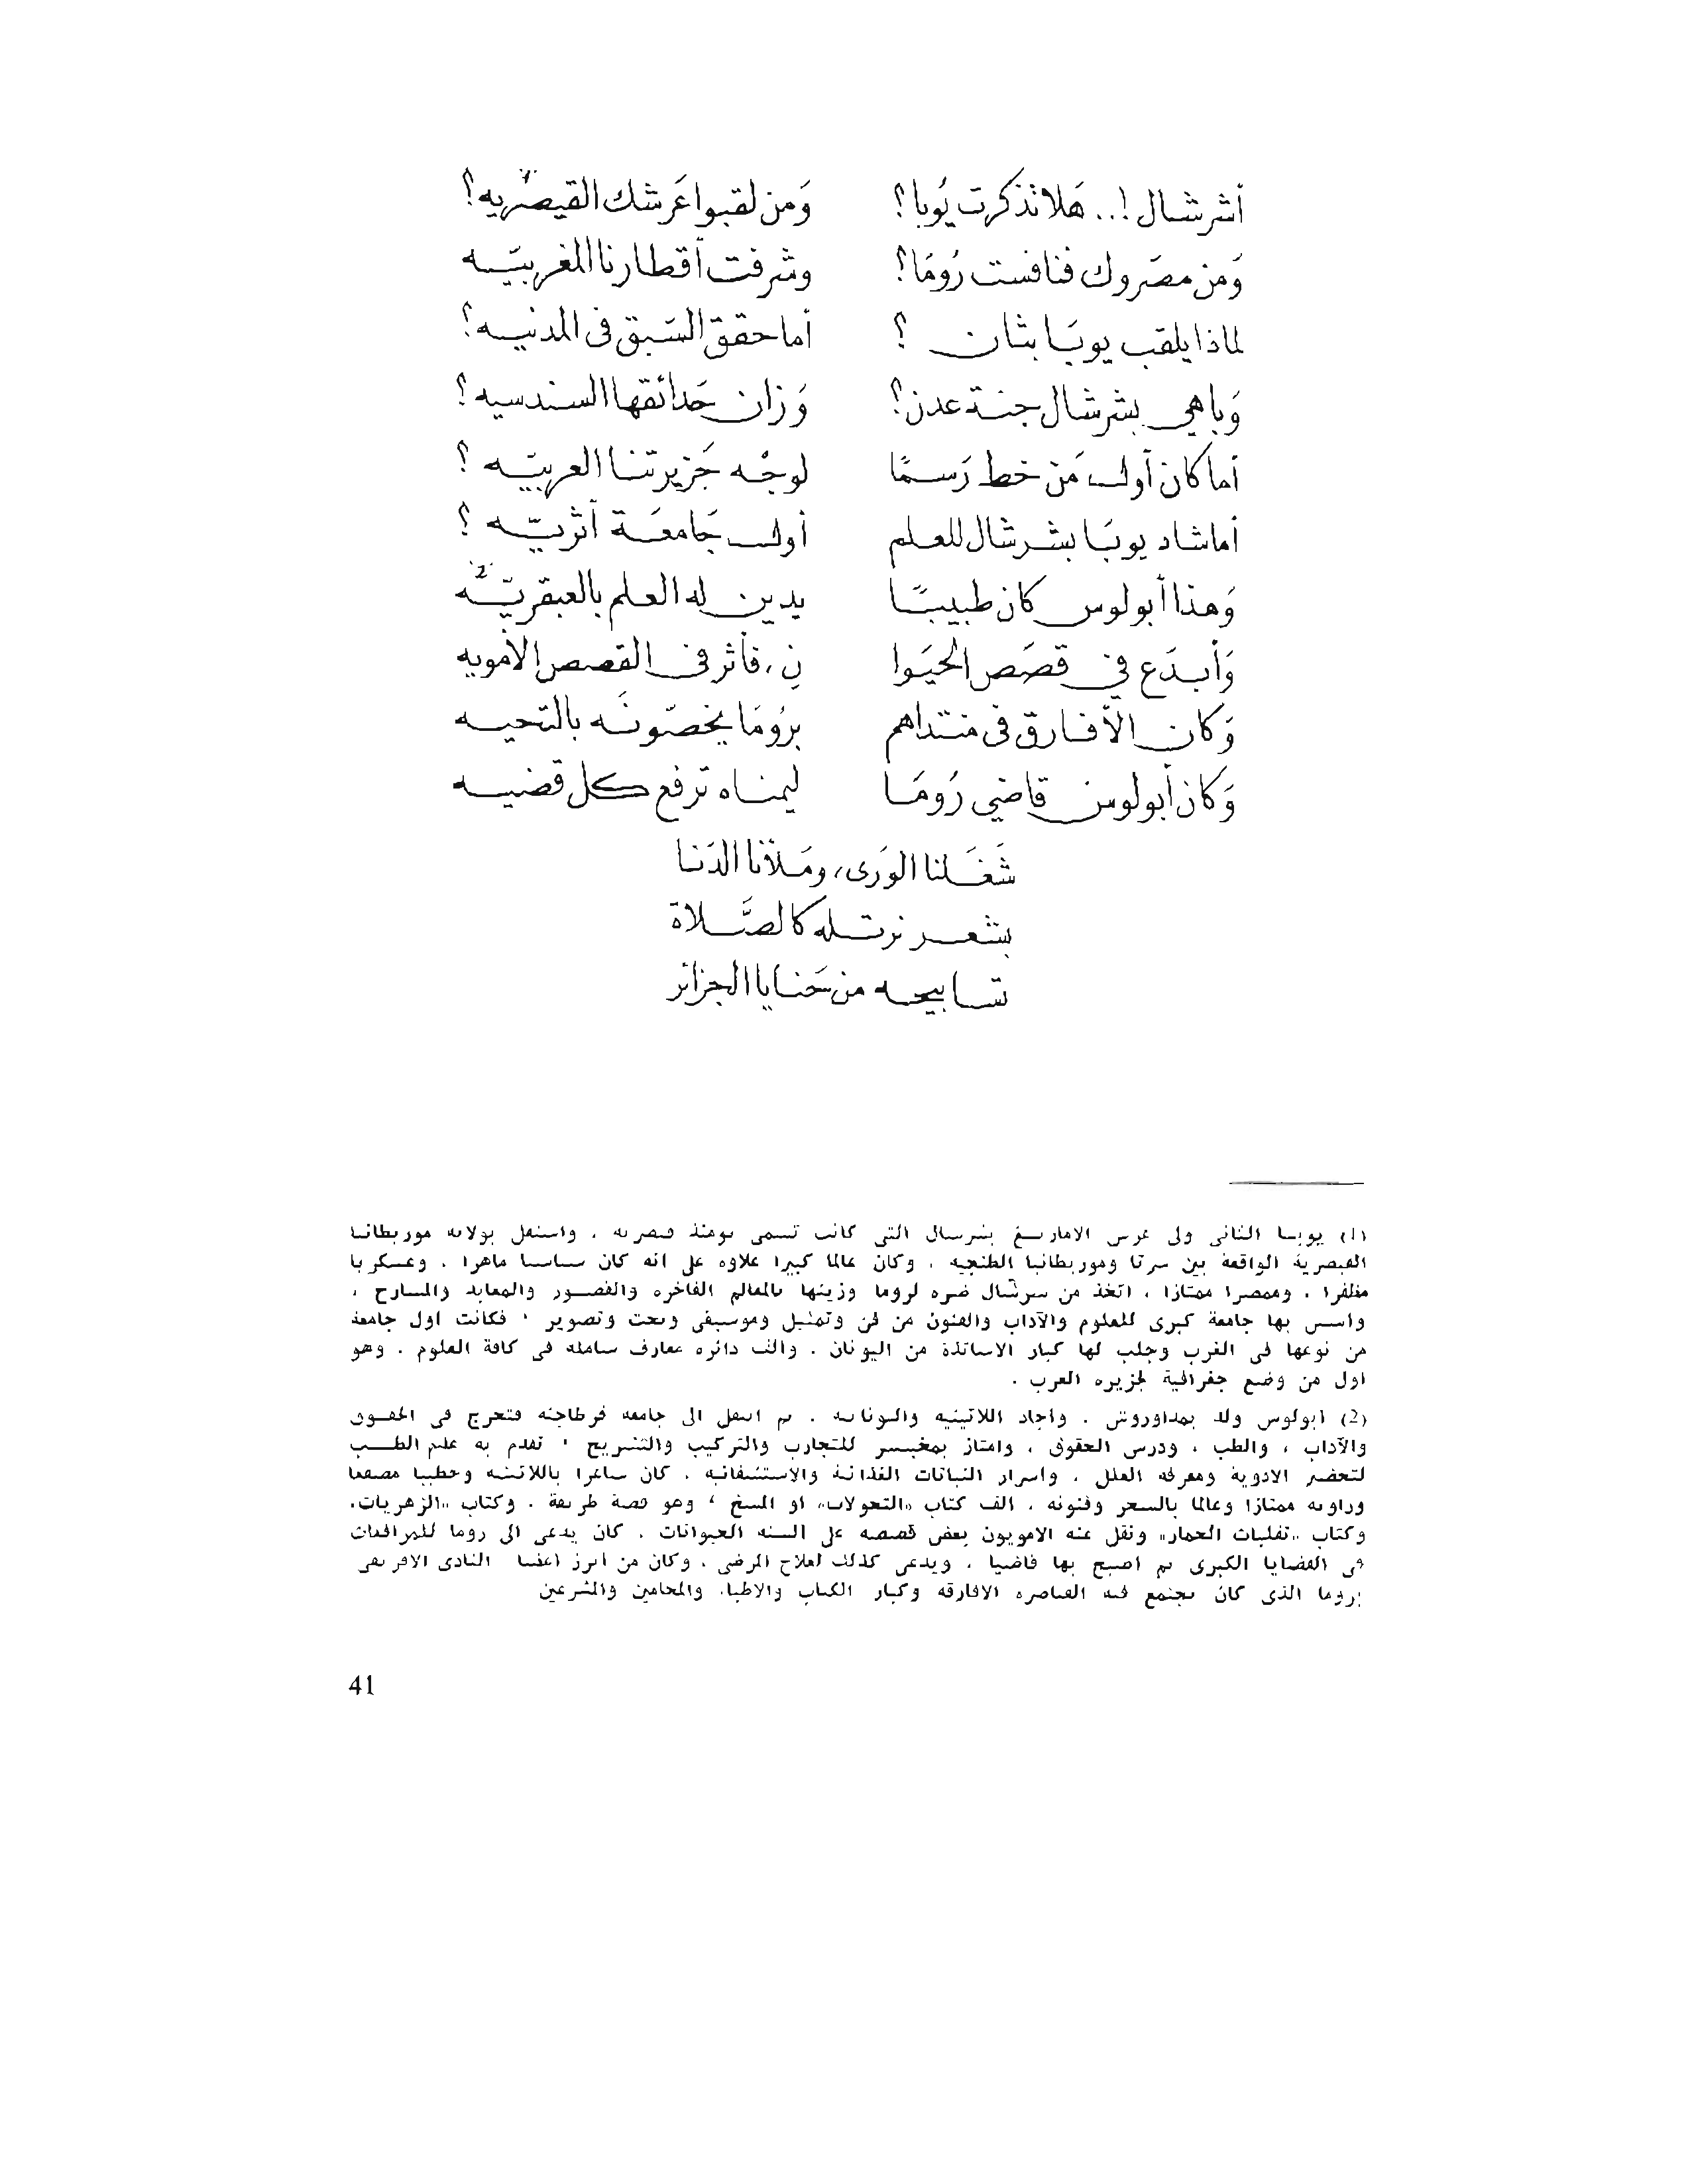 أشرشال !.. هَلا تذكرت يُوبا ؟ وَمن لقبوا عَرشك القيصريه ؟ (1)
وَمن مصَروك فنافست رُومَا ؟ وشرفت أقطارنا المغربيَّه
لماذا يلقب يوبَا بثان ؟ أما حقق السَبق فى المدنيه ؟
وَباهي بشرشال جنة عدن ؟ وَزان حَدائقها السندسيه ؟
أما كان أول مَن خط رَسمًا لوجْه جَزيرتنا العربيّه ؟
أماشاد يوبَا بشرشال للعلم أول جَامعَة أثريّه ؟
وَهذا أبولوس كان طبيبًا يدين له العلم بالعبقريّه (2)
وَأبدَع في قصَص الحيَوا نِ، فأثر فى القصص الأمويه
وَكان الأفارق فى منتداهم برُومَا يخصّونَه بالتحيه
وَكان أبولوس قاضي رُومَا ليمناه ترفع كل قضيه
شَغَلنا الوَرَى، ومَلأنا الدَنا
بشعر نرتله كالصَّلاة
تسابيحه من حَنايا الجزائر
(1) يوبا الثانى ولى عرس الامازيغ بشرشال التى كانت تسمى يومئذ قيصرية ، واستقل بولاية موريطانيا
القيصرية الواقعة بين سرتا وموريطانيا الطنجيه ، وكان عالما كبيرا علاوه على انه كان سياسيا ماهرا ، وعسكريا
مظفرا ، وممصرا ممتازا ، اتخذ من شرشال ضره لروما وزينها بالمعالم الفاخره والقصور والمعابد والمسارح ،
واسس بها جامعة كبرى للعلوم والآداب والفنون من فن وتمثيل وموسيقى ونحت وتصوير ، فكانت اول جامعة
من نوعها فى الغرب وجلب لها كبار الاساتذة من اليونان . والف دائره معارف شاملة فى كافة العلوم . وهو
اول من وضع جغرافية لجزيره العرب .
(2) ابولوس ولد بمداوروش . واجاد اللاتينيه واليونانيه . ثم انتقل الى جامعه قرطاجنه فتخرج فى الحقوق
والآداب ، والطب ، ودرس الحقوق ، وامتاز بمخبسر للتجارب والتركيب والتشريح ، تقدم به علم الطب
لتحضير الادوية ومعرفه العلل ، واسرار النباتات الغذائية والاستشفائيه . كان شاعرا باللاتينيه وخطيبا مصقعا
وراويه ممتازا وعالما بالسحر وفنونه ، الف كتاب «التحولات» او المسخ ، وهو قصة طريفة . وكتاب «الزهريات»
وكتاب «تقلبات الحمار» ونقل عنه الامويون بعض قصصه على السنه الحيوانات . كان يدعى الى روما للمرافعات
فى القضايا الكبرى ثم اصبح بها قاضيا ، ويدعى كذلك لعلاج المرضى ، وكان من ابرز اعضا النادى الافريقى
بروما الذى كان يجتمع فيه القياصره الافارقه وكبار الكتاب والاطباء والمحامين والمشرعين
41